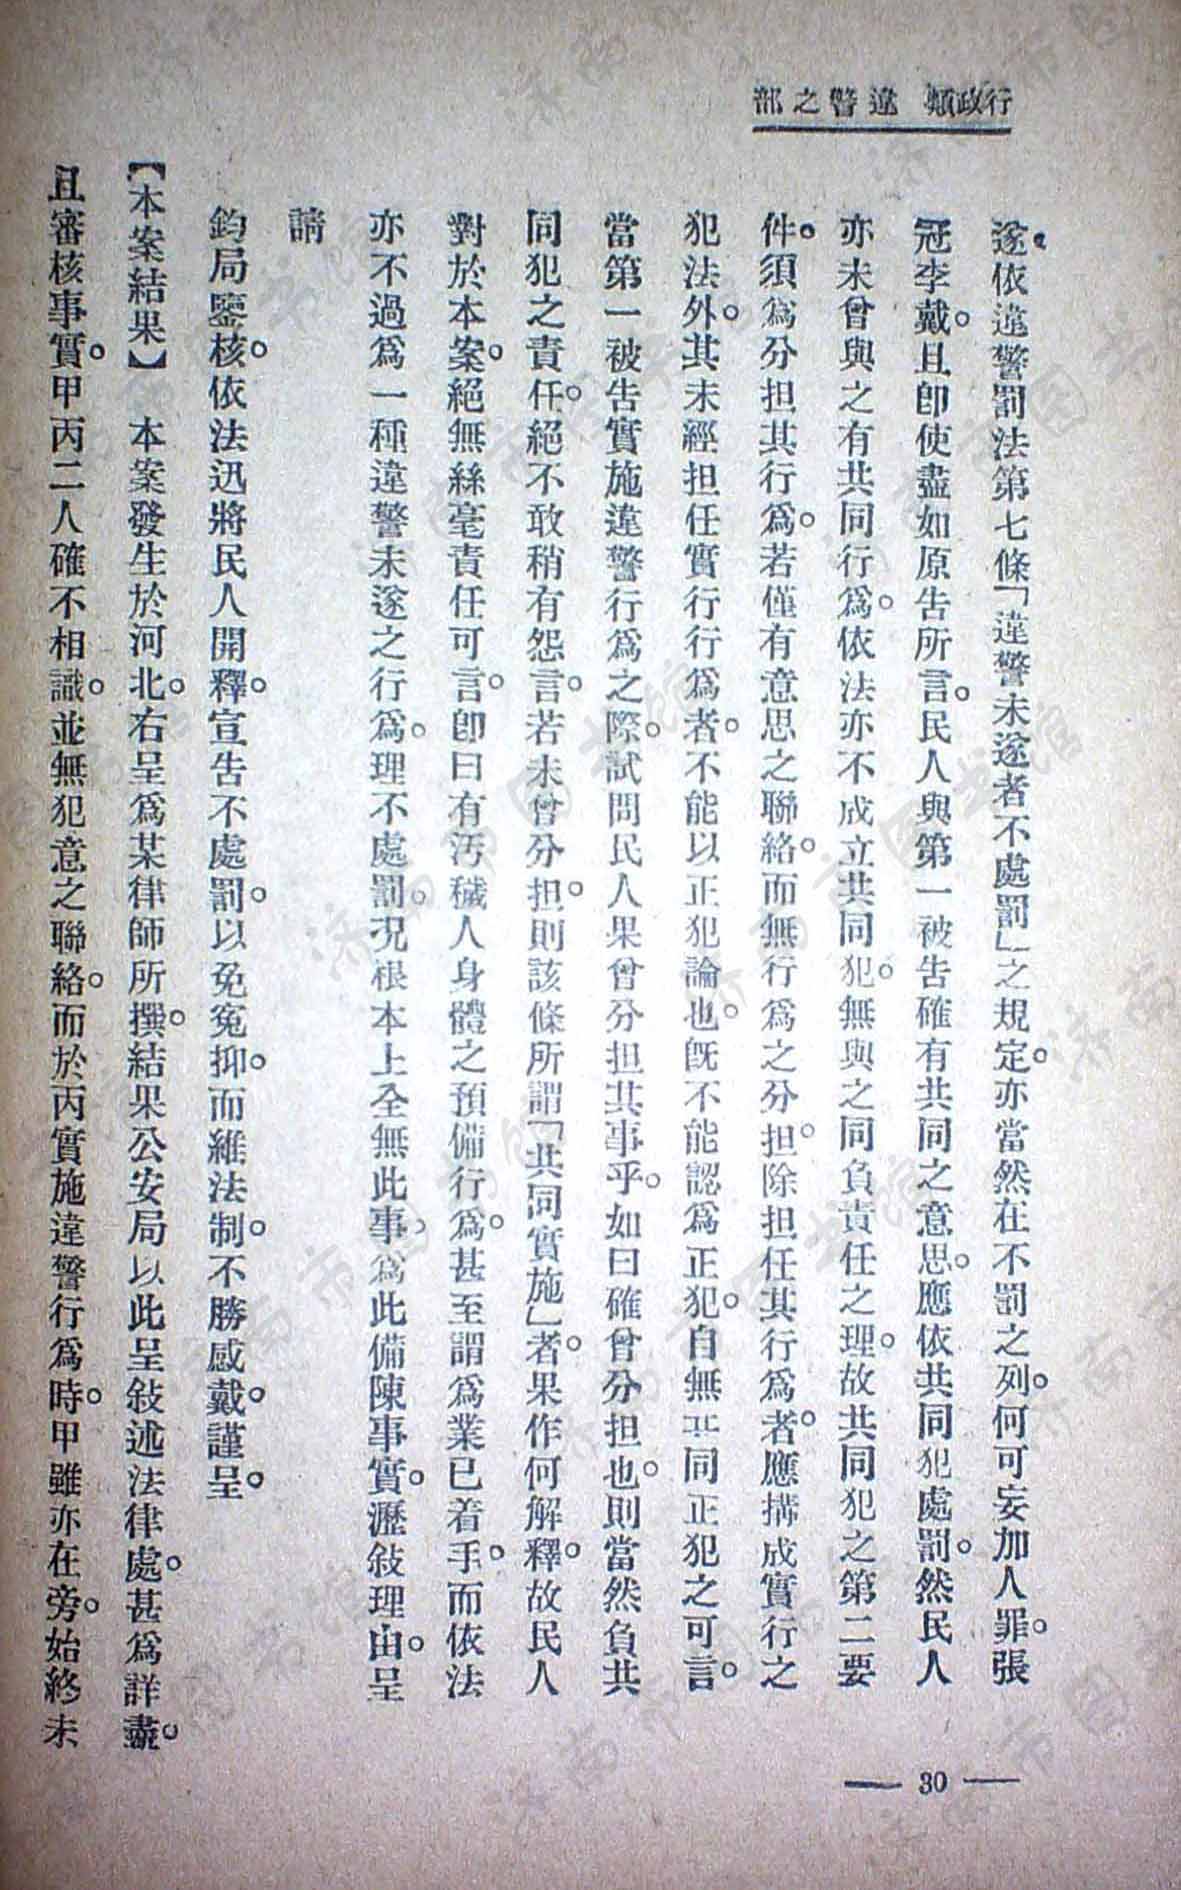 行政類　違警之部
遂。依違警罰法第七條「違警未遂者不處罰」之規定。亦當然在不罰之列。何可妄加人罪。張
冠李戴。且卽使盡如原告所言。民人與第一被告確有共同之意思。應依共同犯處罰。然民人
亦未曾與之有共同行爲。依法亦不成立共同犯。無與之同負責任之理。故共同犯之第二要
件。須爲分担其行爲。若僅有意思之聯絡。而無行爲之分担。除担任其行爲者。應搆成實行之
犯法外。其未經担任實行行爲者。不能以正犯論也。旣不能認爲正犯。自無共同正犯之可言。
當第一被告實施違警行爲之際。試問民人果曾分担其事乎。如曰確曾分担也。則當然負共
同犯之責任。絕不敢稍有怨言。若未曾分担。則該條所謂「共同實施」者。果作何解釋。故民人
對於本案。絕無絲毫責任可言。卽曰有污穢人身體之預備行爲。甚至謂爲業已着手。而依法
亦不過爲一種違警未遂之行爲。理不處罰。况根本上全無此事。爲此備陳事實。瀝敍理由。呈
請
鈞局鑒核。依法迅將民人開釋。宣告不處罰。以免寃抑。而維法制。不勝感戴。謹呈。
【本案結果】　本案發生於河北。右呈爲某律師所撰。結果公安局以此呈敍述法律處。甚爲詳盡。
且審核事實。甲丙二人確不相識。並無犯意之聯絡。而於丙實施違警行爲時。甲雖亦在旁。始終未
— 30 —